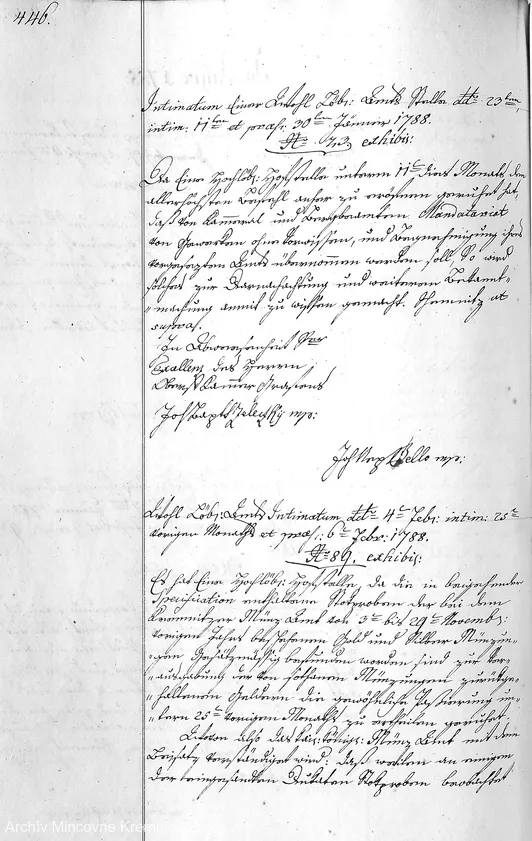 446.
Intimatum Einer Wohl Löbl: Amts Stelle dto 23ten
intim: 11ten et praes: 30ten Jänner 1788.
No 43 exhibiti:
Da Eine Hochlöbl: Hofstelle unterm 11ten dies Monats den
allerhöchsten Befehl anher zu eröffnen geruhet hat,
daß von Kammeral und Bergbeamten Mandatariat
von Gewerken ohne Vorwissen, und Begnehmigung ihres
vorgesezten Amts übernommen werden soll. So wird
solches zur Darnachachtung und weiteren Bekannt-
machung anmit zu wissen gemacht. Schemnitz ut
supra.
In Abwesenheit Sr
Excellenz des Herrn
Oberst Kammer Grafens
Joh Bapt mp:
Joh Nep Bello mp:
Wohl Löbl: Amts Intimatum dto 4ten Febr: intim: 25ten
vorigen Monaths et praes: 6ten Febr: 1788.
No 89. exhibiti:
Es hat Eine Hochlöbl: Hofstelle, da die in beygehender
Specification enthaltene Stokproben der bei dem
Kremnitzer Münz Amt von 3ten bis 29ten Novemb:
vorigen Jahrs beschehenen Gold und Silber Münzun-
gen Gesätzmässig befunden worden sind zur Ver-
ausgabung der von solchen Münzungen zurükge-
fallenen Geldern die gewöhnliche Passierung un-
term 25ten vorigen Monaths zu ertheilen geruhet.
Wovon also das Kais: Königl: Münz Amt mit dem
Beisatz verständiget wird: daß weilen an einigen
der eingesandten Dukaten Stokproben beobachtet
Archív Mincovne Kremnica